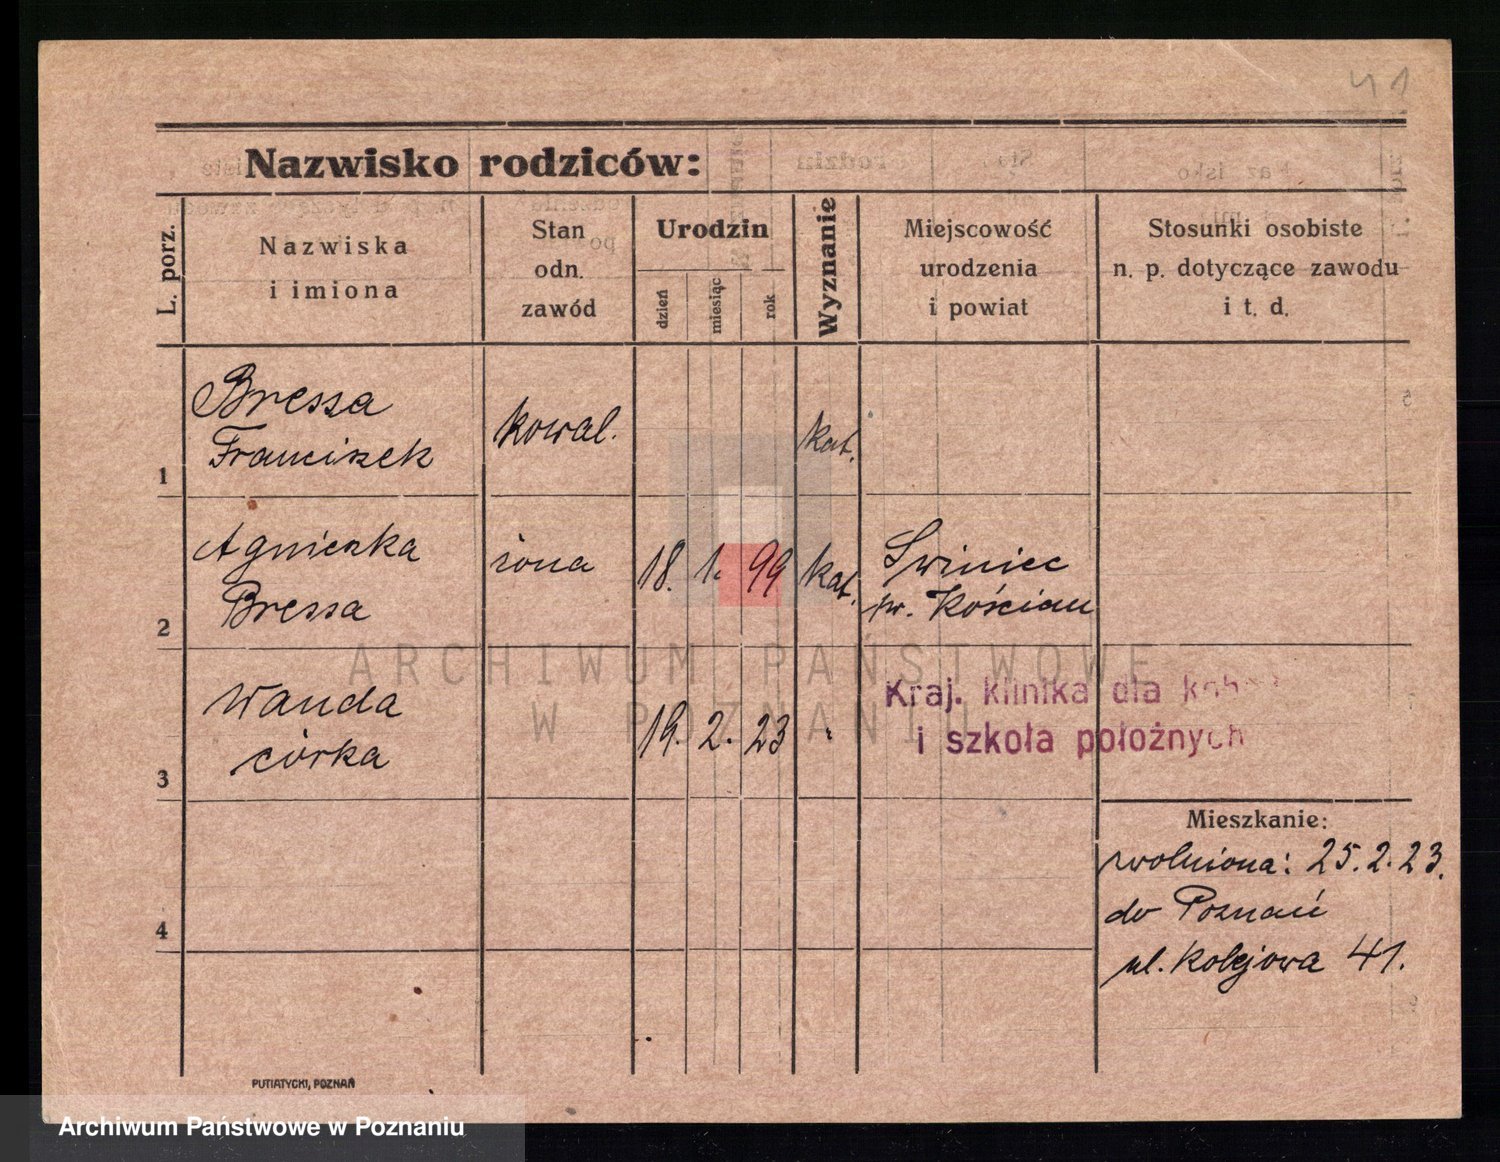 41
Nazwisko rodziców:
L. porz.
Nazwiska
i imiona
Stan
odn.
zawód
Urodzin
dzień
miesiąc
rok
Wyznanie
Miejscowość
urodzenia
i powiat
Stosunki osobiste
n. p. dotyczące zawodu
i t. d.
1
Bressa
Franciszek
kowal.
kat.
2
Agnieszka
Bressa
żona
18. 1. 99
kat.
Swiniec
pw. Kościan
3
Wanda
córka
19. 2. 23
Kraj. klinika dla
i szkoła położnych
4
Mieszkanie:
zwolniona: 25.2.23.
do Poznań
ul. Kolejowa 41.
PUTIATYCKI, POZNAŃ
ARCHIWUM PAŃSTWOWE
W POZNANIU
Archiwum Państwowe w Poznaniu